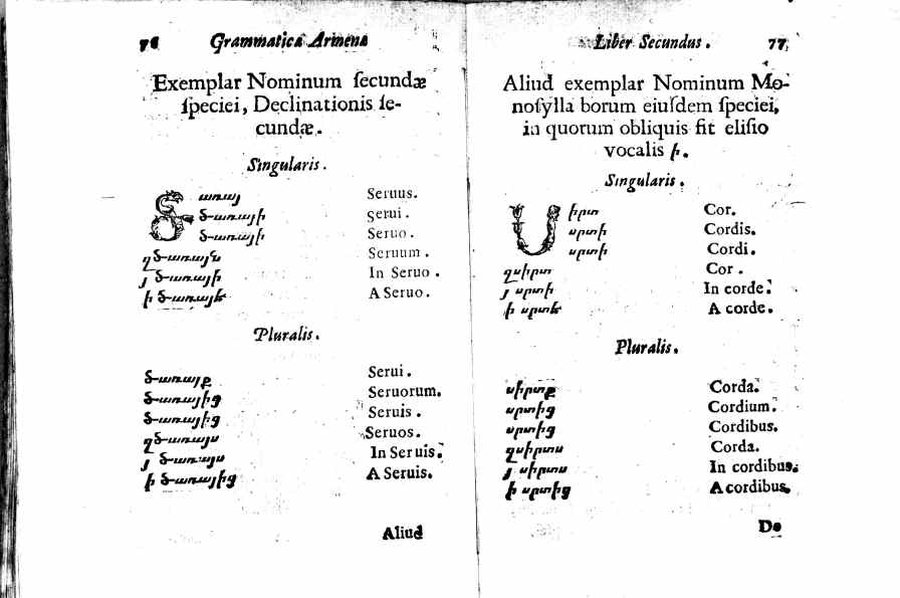 76 Grammaticæ Armenæ
Exemplar Nominum ſecundæ
ſpeciei, Declinationis ſe-
cundæ.
Singularis.
Ծառայ Seruus.
ծառայի Serui.
ծառայի Seruo.
զծառայն Seruum.
յ ծառայի In Seruo.
ի ծառայէ A Seruo.
Pluralis.
ծառայք Serui.
ծառայից Seruorum.
ծառայից Seruis.
զծառայս Seruos.
յ ծառայս In Seruis.
ի ծառայից A Seruis.
Aliud
Liber Secundus. 77
Aliud exemplar Nominum Mo-
noſylla borum eiuſdem ſpeciei,
in quorum obliquis fit eliſio
vocalis ի.
Singularis.
Սիրտ Cor.
սրտի Cordis.
սրտի Cordi.
զսիրտ Cor.
յ սրտի In corde.
ի սրտէ A corde.
Pluralis.
սիրտք Corda.
սրտից Cordium.
սրտից Cordibus.
զսիրտս Corda.
յ սիրտս In cordibus.
ի սրտից A cordibus.
De